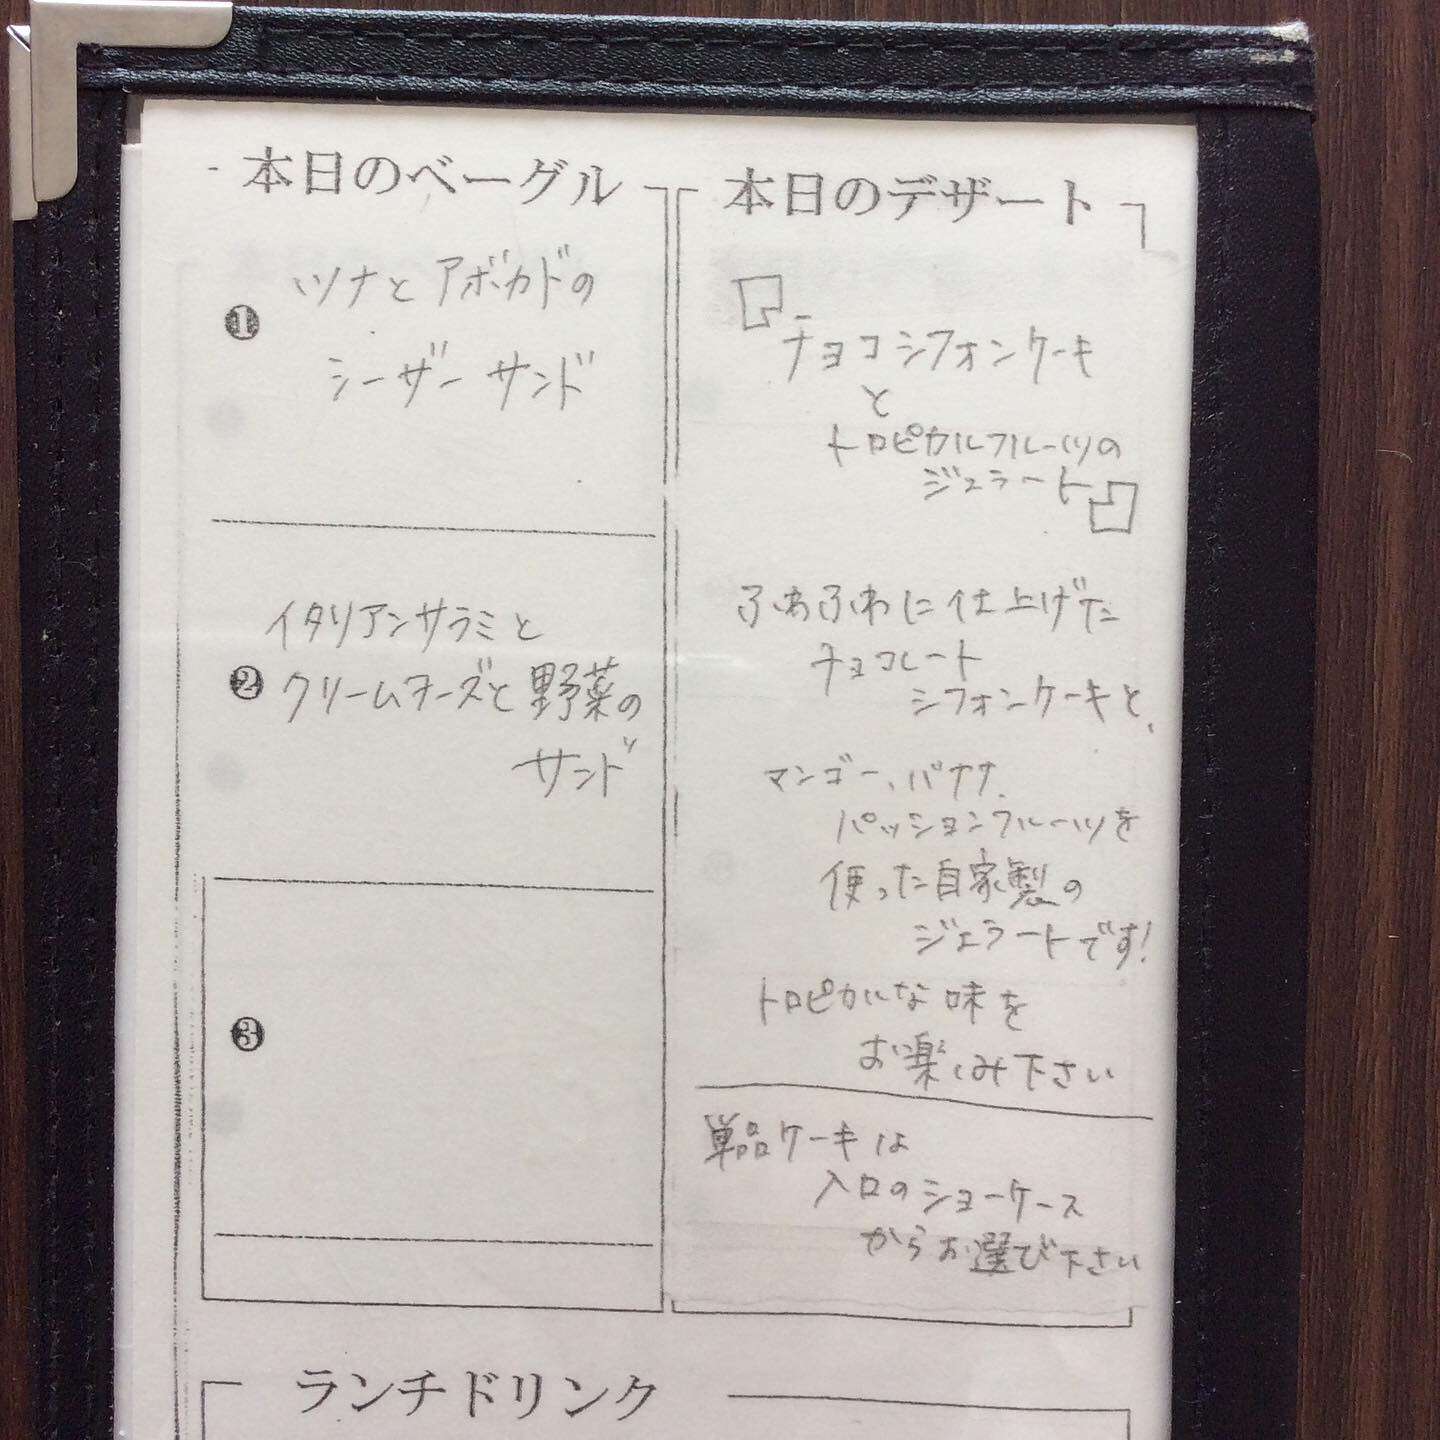 本日のベーグル
❶
ツナとアボカドの
シーザーサンド
❷
イタリアンサラミと
クリームチーズと野菜の
サンド
❸
本日のデザート
『チョコシフォンケーキ
と
トロピカルフルーツの
ジェラート』
ふわふわに仕上げた
チョコレート
シフォンケーキと、
マンゴー、バナナ、
パッションフルーツを
使った自家製の
ジェラートです!
トロピカルな味を
お楽しみ下さい
単品ケーキは
入口のショーケース
からお選び下さい
ランチドリンク